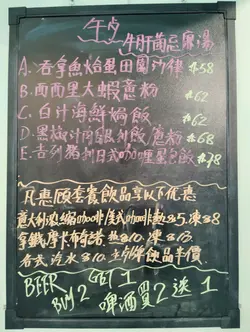 午点
牛肝菌忌廉湯
A. 吞拿魚烚蛋田園沙律 #58
B. 西西里大蝦意粉 #62
C. 白汁海鮮焗飯 #62
D. 黑椒汁肉眼扒飯/意粉 #68
E. 吉列猪扒日式咖喱蛋包飯 #78
凡惠顧套餐飲品享以下優惠
意大利濃縮咖啡/美式咖啡熱&5.凍&8
拿鐵摩卡布奇諾 熱&10.凍&13.
各式汽水&10.主列牌飲品半價
BEER
BUY 2 GET 1
啤酒買2送1